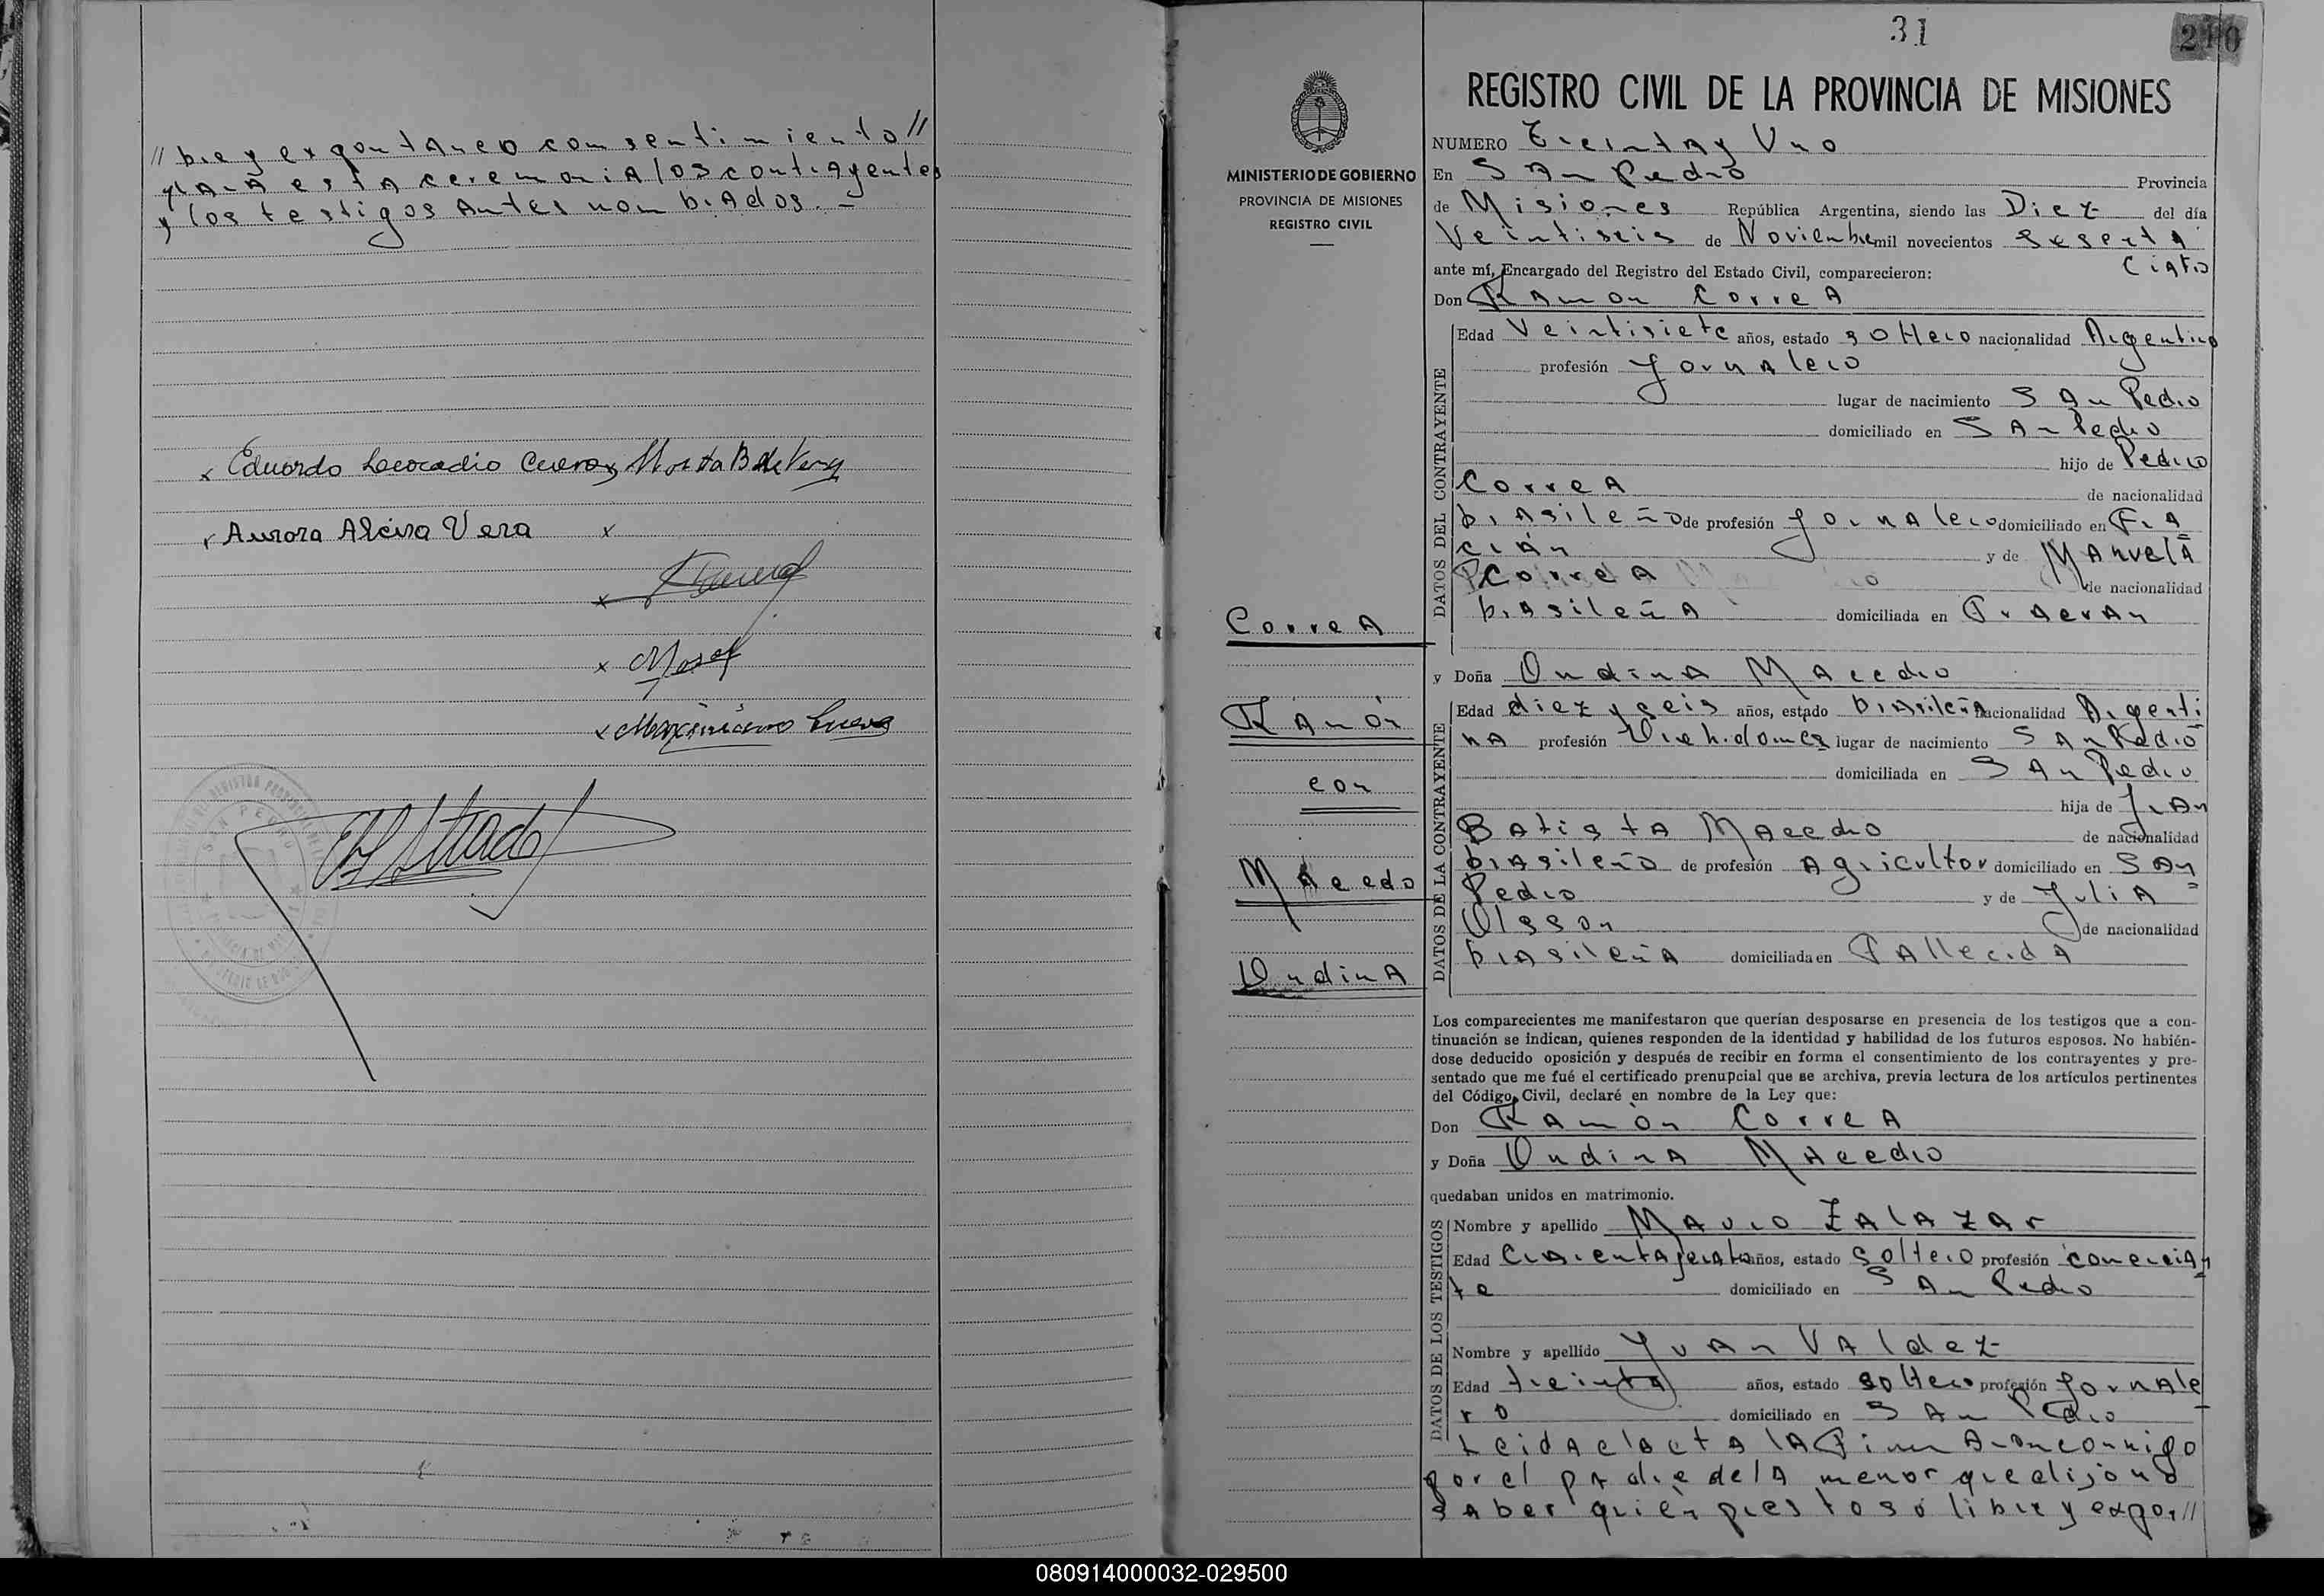 // bre y expontaneo consentimiento //
para esta ceremonia los contrayentes
y los testigos antes nombrados. -
x Eduardo Leocadio Cuevas Marta B de Vera
x Aurora Alcira Vera x
x
x
x Maximiano Cueva
SAN PEDRO
31
210
MINISTERIO DE GOBIERNO
PROVINCIA DE MISIONES
REGISTRO CIVIL
Correa
Ramón
con
Macedo
Undina
REGISTRO CIVIL DE LA PROVINCIA DE MISIONES
NUMERO Treinta y Uno
En San Pedro Provincia
de Misiones República Argentina, siendo las Diez del día
Veintiseis de Noviembre mil novecientos sesenta
ciatro
ante mí, Encargado del Registro del Estado Civil, comparecieron:
Don Ramon Correa
DATOS DEL CONTRAYENTE
Edad Veintisiete años, estado soltero nacionalidad Argentino
profesión Jornalero
lugar de nacimiento San Pedro
domiciliado en San Pedro
hijo de Pedro
Correa de nacionalidad
brasileño de profesión jornalero domiciliado en Fra
cran y de Manuela
Correa de nacionalidad
brasileña domiciliada en Fracran
y Doña Undina Macedo
DATOS DE LA CONTRAYENTE
Edad diez y seis años, estado brasileña nacionalidad Argenti
na profesión Queh.domes lugar de nacimiento San Pedro
domiciliada en San Pedro
hija de Juan
Batista Macedo de nacionalidad
brasileño de profesión Agricultor domiciliado en San
Pedro y de Julia
Olsson de nacionalidad
brasileña domiciliada en Fallecida
Los comparecientes me manifestaron que querían desposarse en presencia de los testigos que a con-
tinuación se indican, quienes responden de la identidad y habilidad de los futuros esposos. No habién-
dose deducido oposición y después de recibir en forma el consentimiento de los contrayentes y pre-
sentado que me fué el certificado prenupcial que se archiva, previa lectura de los artículos pertinentes
del Código Civil, declaré en nombre de la Ley que:
Don Ramón Correa
y Doña Undina Macedo
quedaban unidos en matrimonio.
DATOS DE LOS TESTIGOS
Nombre y apellido Mauro Zalazar
Edad años, estado soltero profesión comercian
te domiciliado en San Pedro
Nombre y apellido Juan Valdez
Edad treinta años, estado soltero profesión jornale
ro domiciliado en San Pedro
Leida el acta la firman conmigo
por el padre de la menor que dijo no
saber quién presto só libre y expon//
080914000032-029500